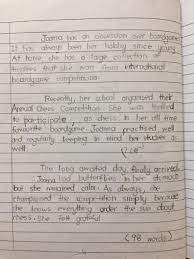 Joanna has an obsession over boardgame.
It has always been her hobby since young.
At home she has a large collection of
trophies that she won from international
boardgame competitions.
Recently, her school organised their
Annual Chess Competition. She was thrilled
to participate, as chess is her all time
favourite boardgame. Joanna practised well
and regularly keeping in mind her studies as
well.
The long awaited day finally arrived.
Joana had butterflies in her stomach
but she remained calm. As always, she
championed the competition simply because
she knows everything under the sun about
chess. She felt grateful.
(98 words)